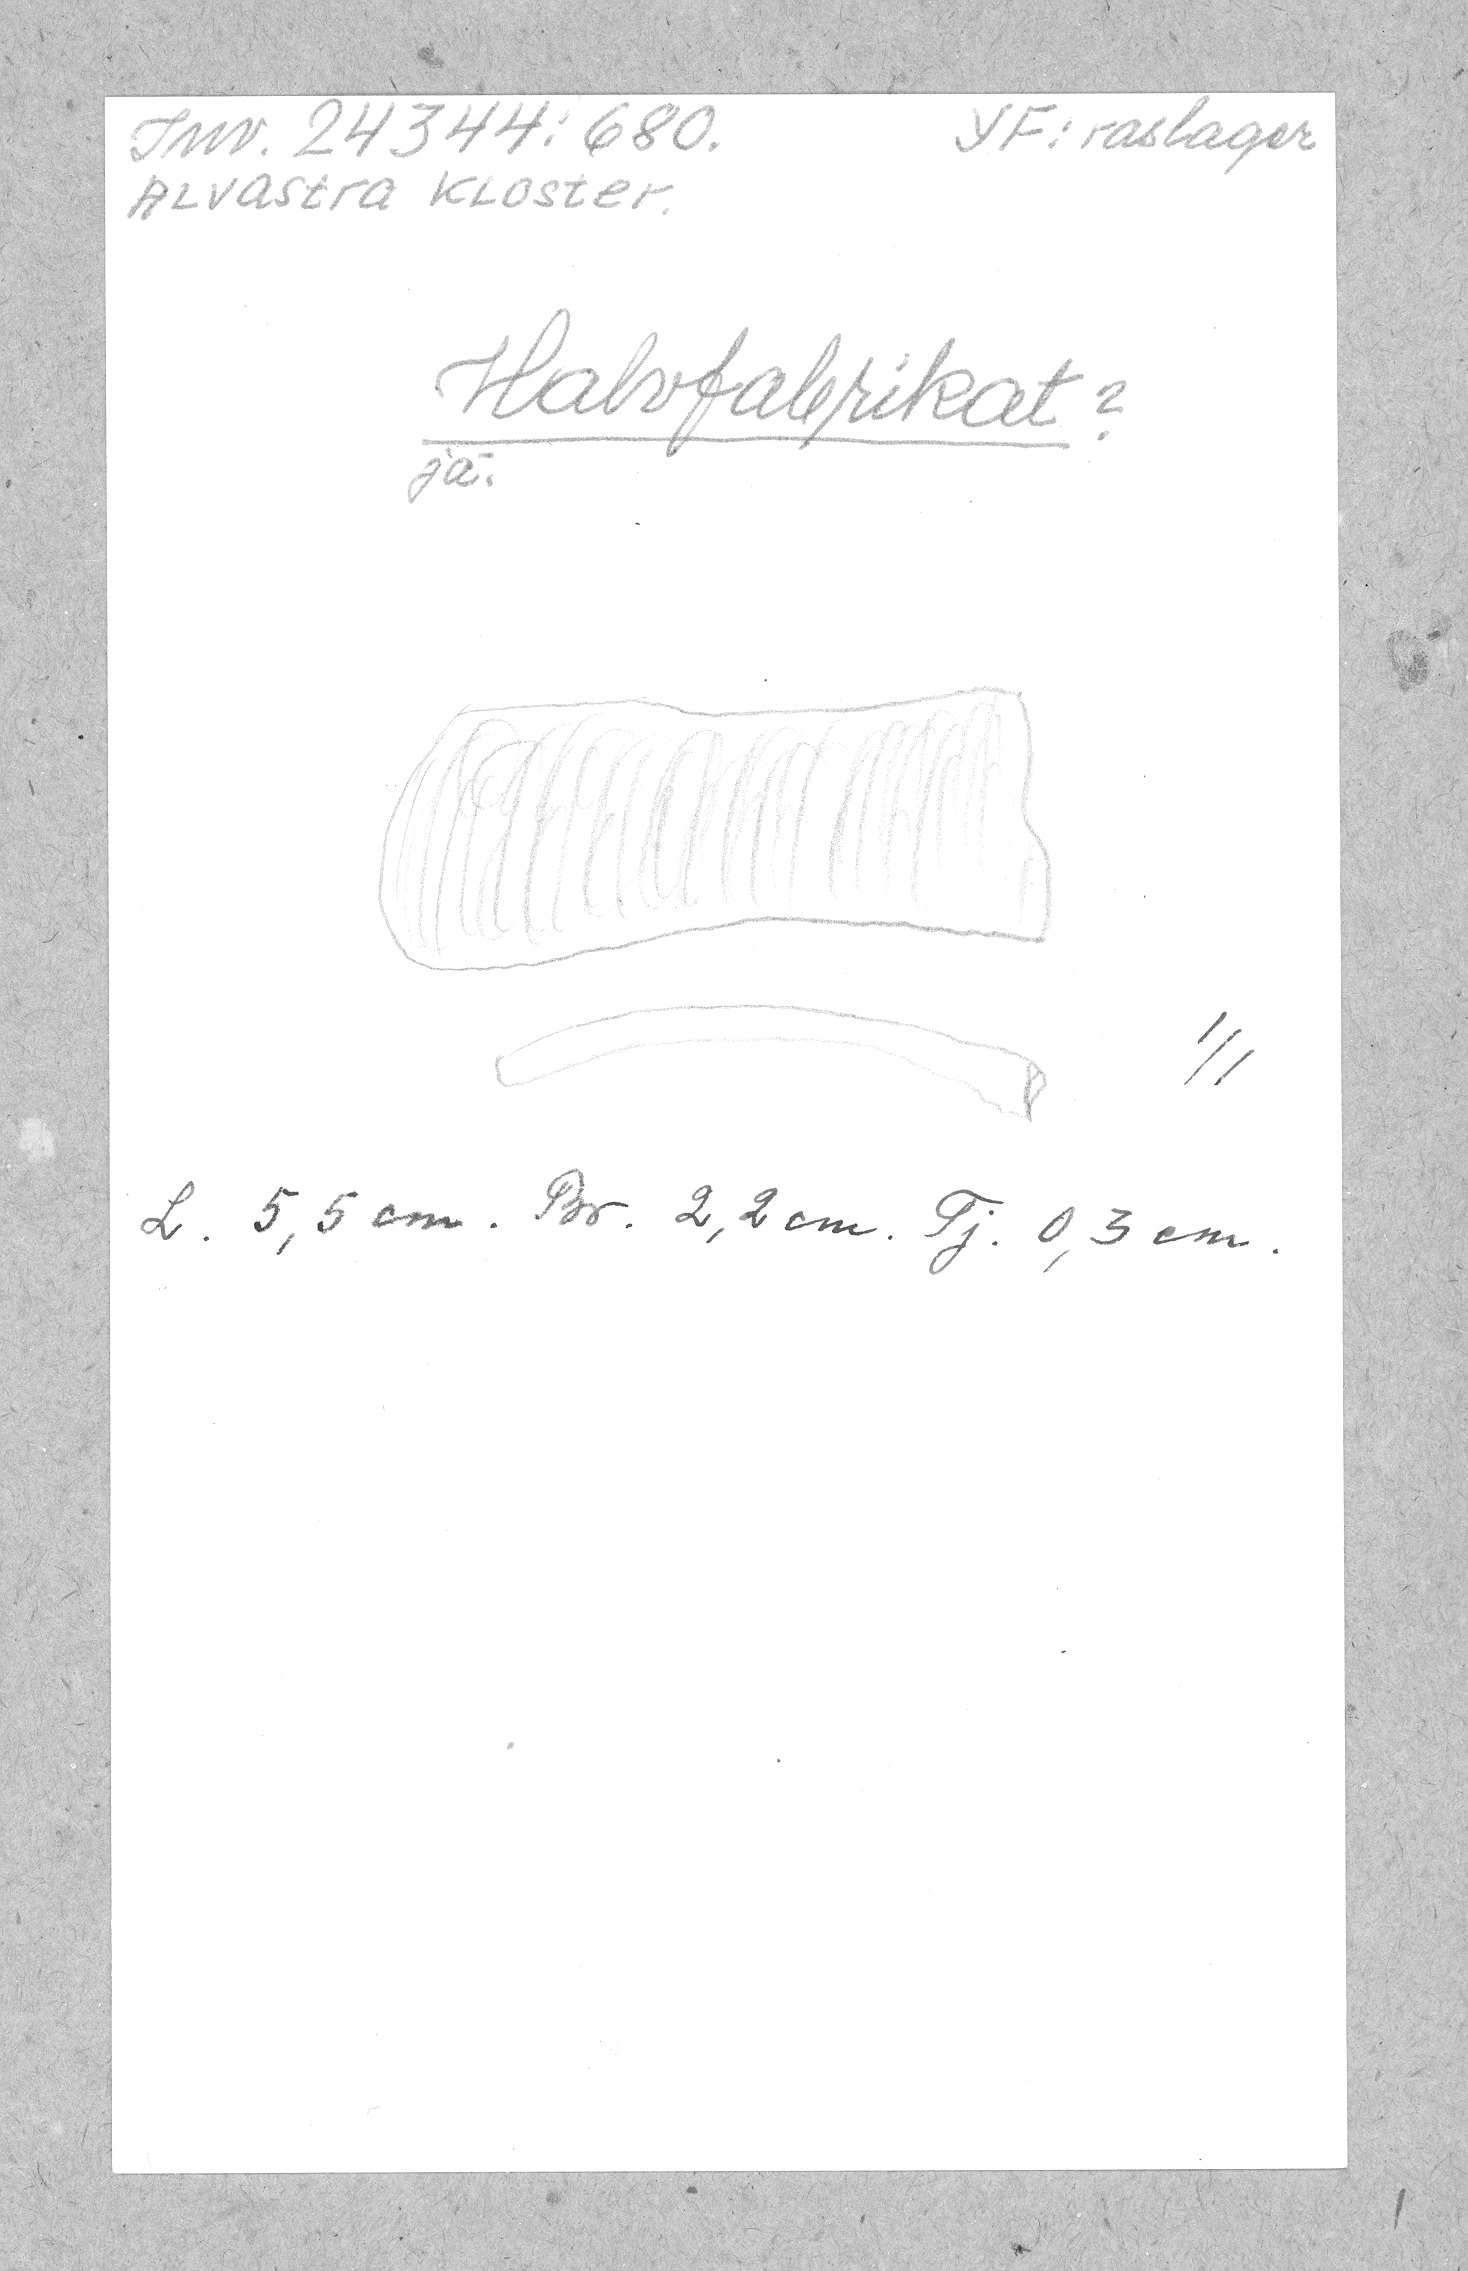 Inv. 24344:680. YF: raslager
Alvastra Kloster.
Halvfabrikat?
ja.
1/1
L. 5,5 cm. Br. 2,2 cm. Tj. 0,3 cm.